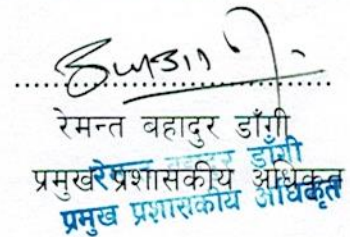 रेमन्त बहादुर डाँगी
प्रमुख प्रशासकीय अधिकृत
रेमन्त बहादुर डाँगी
प्रमुख प्रशासकीय अधिकृत